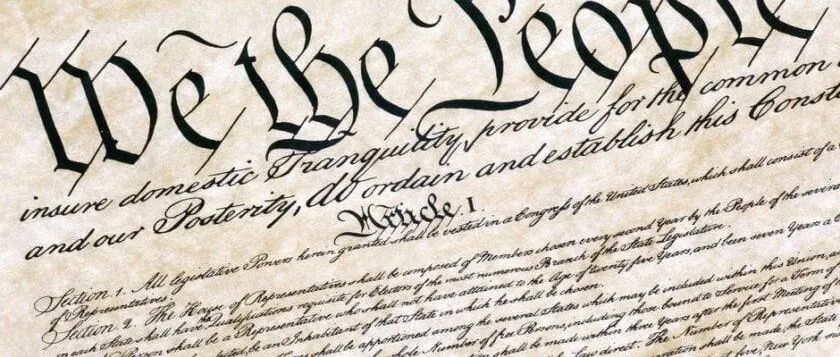 We the People
insure domestic Tranquility, provide for the common
and our Posterity, do ordain and establish this Const
Article. I.
Section. 1. All legislative Powers herein granted shall be vested in a Congress of the United States, which shall consist of a
of Representatives.
Section. 2. The House of Representatives shall be composed of Members chosen every second Year by the People of the seve
in each State shall have Qualifications requisite for Electors of the most numerous Branch of the State Legislature.
Person shall be a Representative who shall not have attained to the Age of twenty five Years, and been seven Years a
be an Inhabitant of that State in which he shall be chosen.
shall be apportioned among the several States which may be included within this Union,
whole Number of free Persons, including those bound to Service for a Term of
shall be made within three Years after the first Meeting of
direct. The Number of Represent
shall be made, the State
New York